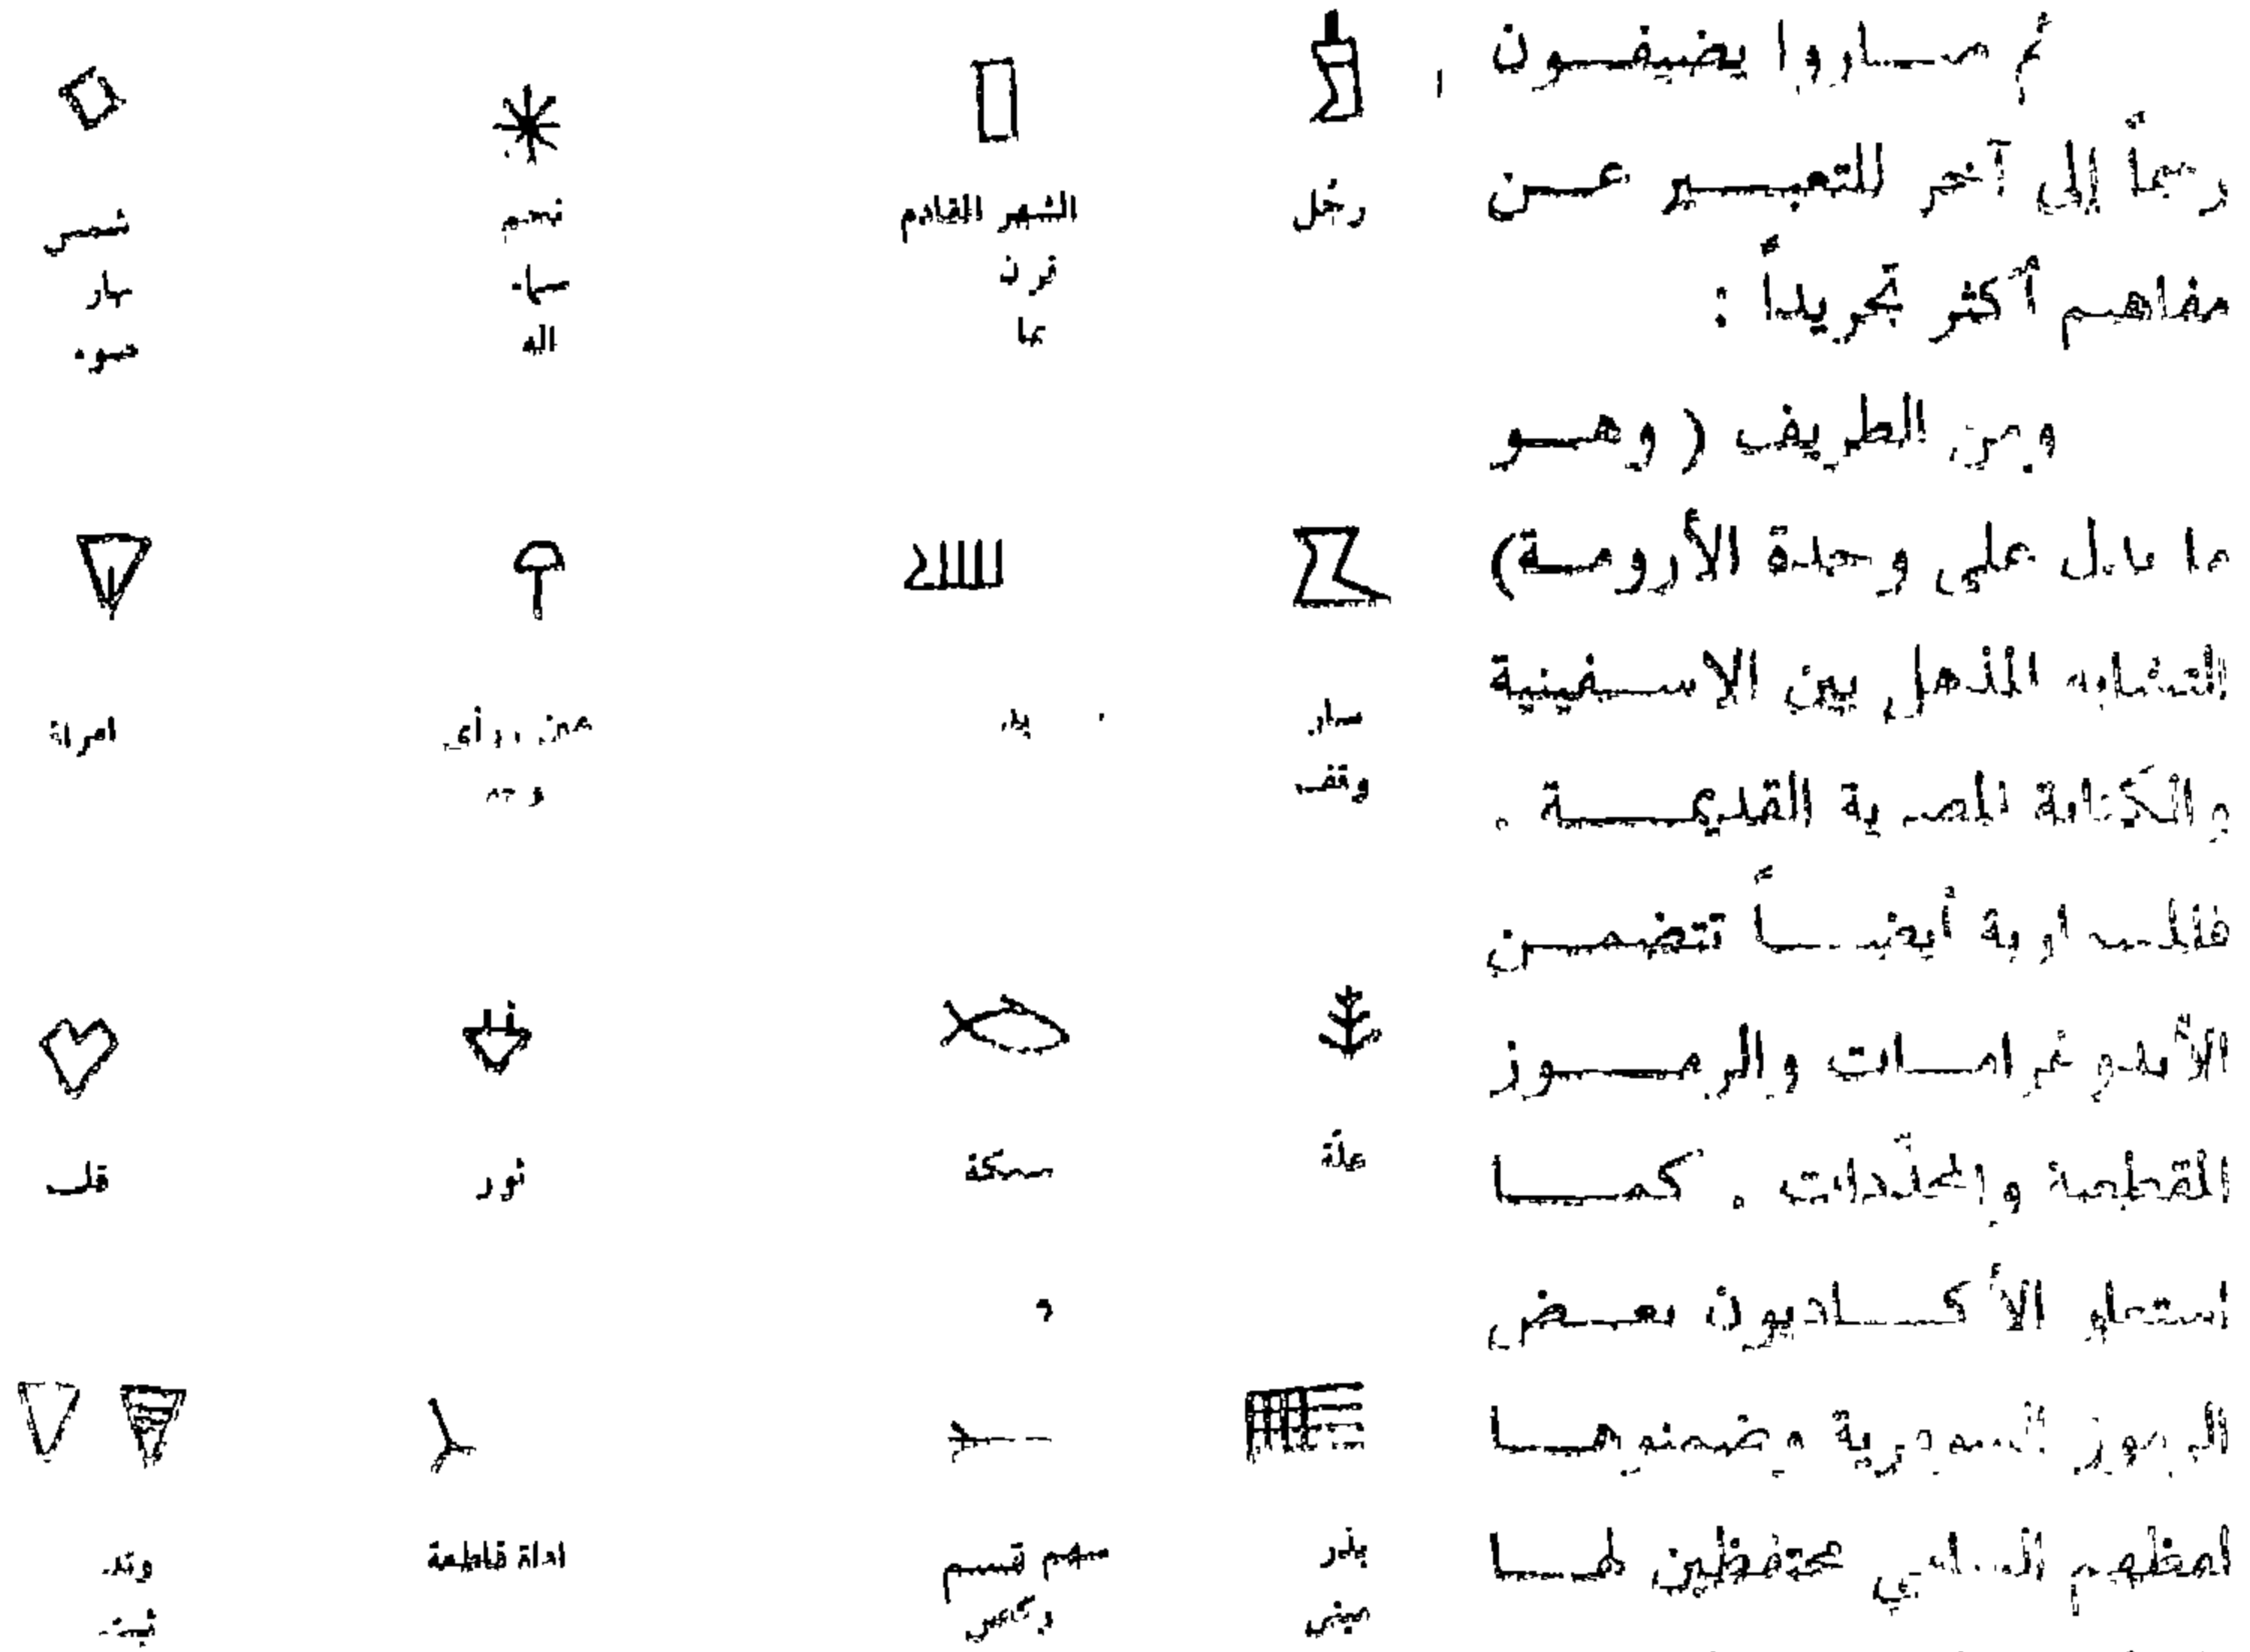 ثم صاروا يضيفون
رسماً إلى آخر للتعبير عن
مفاهيم أكثر تجريداً :
ومن الطريف ( وهو
ما يدل على وحدة الأرومة)
التشابه المذهل بين الإسفينية
والكتابة المصرية القديمة .
أيضاً تتضمن
الأيدوغرامات والرموز
المقطعية والمحدّدات . كما
استعمل الأكاديون بعض
الرموز السومرية وضمنوها
لفظهم السامي محتفظين لها
رجُل
الشهر القادم
قرن
نما
نجم
سماء
اله
شمس
نهار
ضوء
سار
وقف
يد
عين ، رأى
وجه
امراة
غلّة
سمكة
ثور
قلب
بذر
مبنى
سهم قسم
ركض
اداة قاطعة
وتد
ثبت